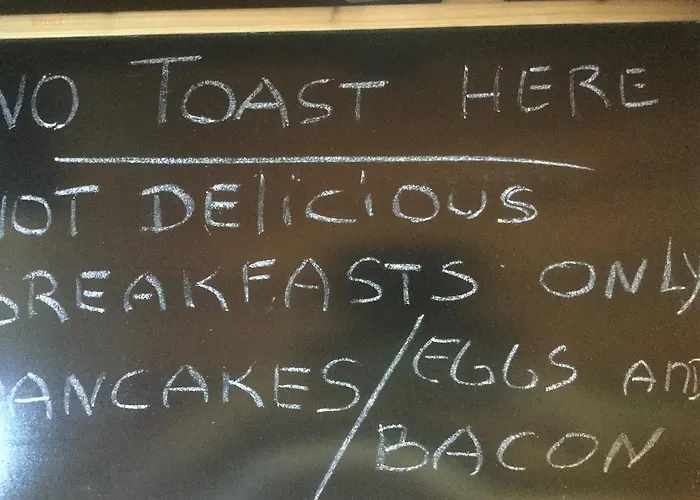 NO TOAST HERE
HOT DELiCiOUS
BREAKFASTS ONLY
PANCAKES/EGGS AND
BACON